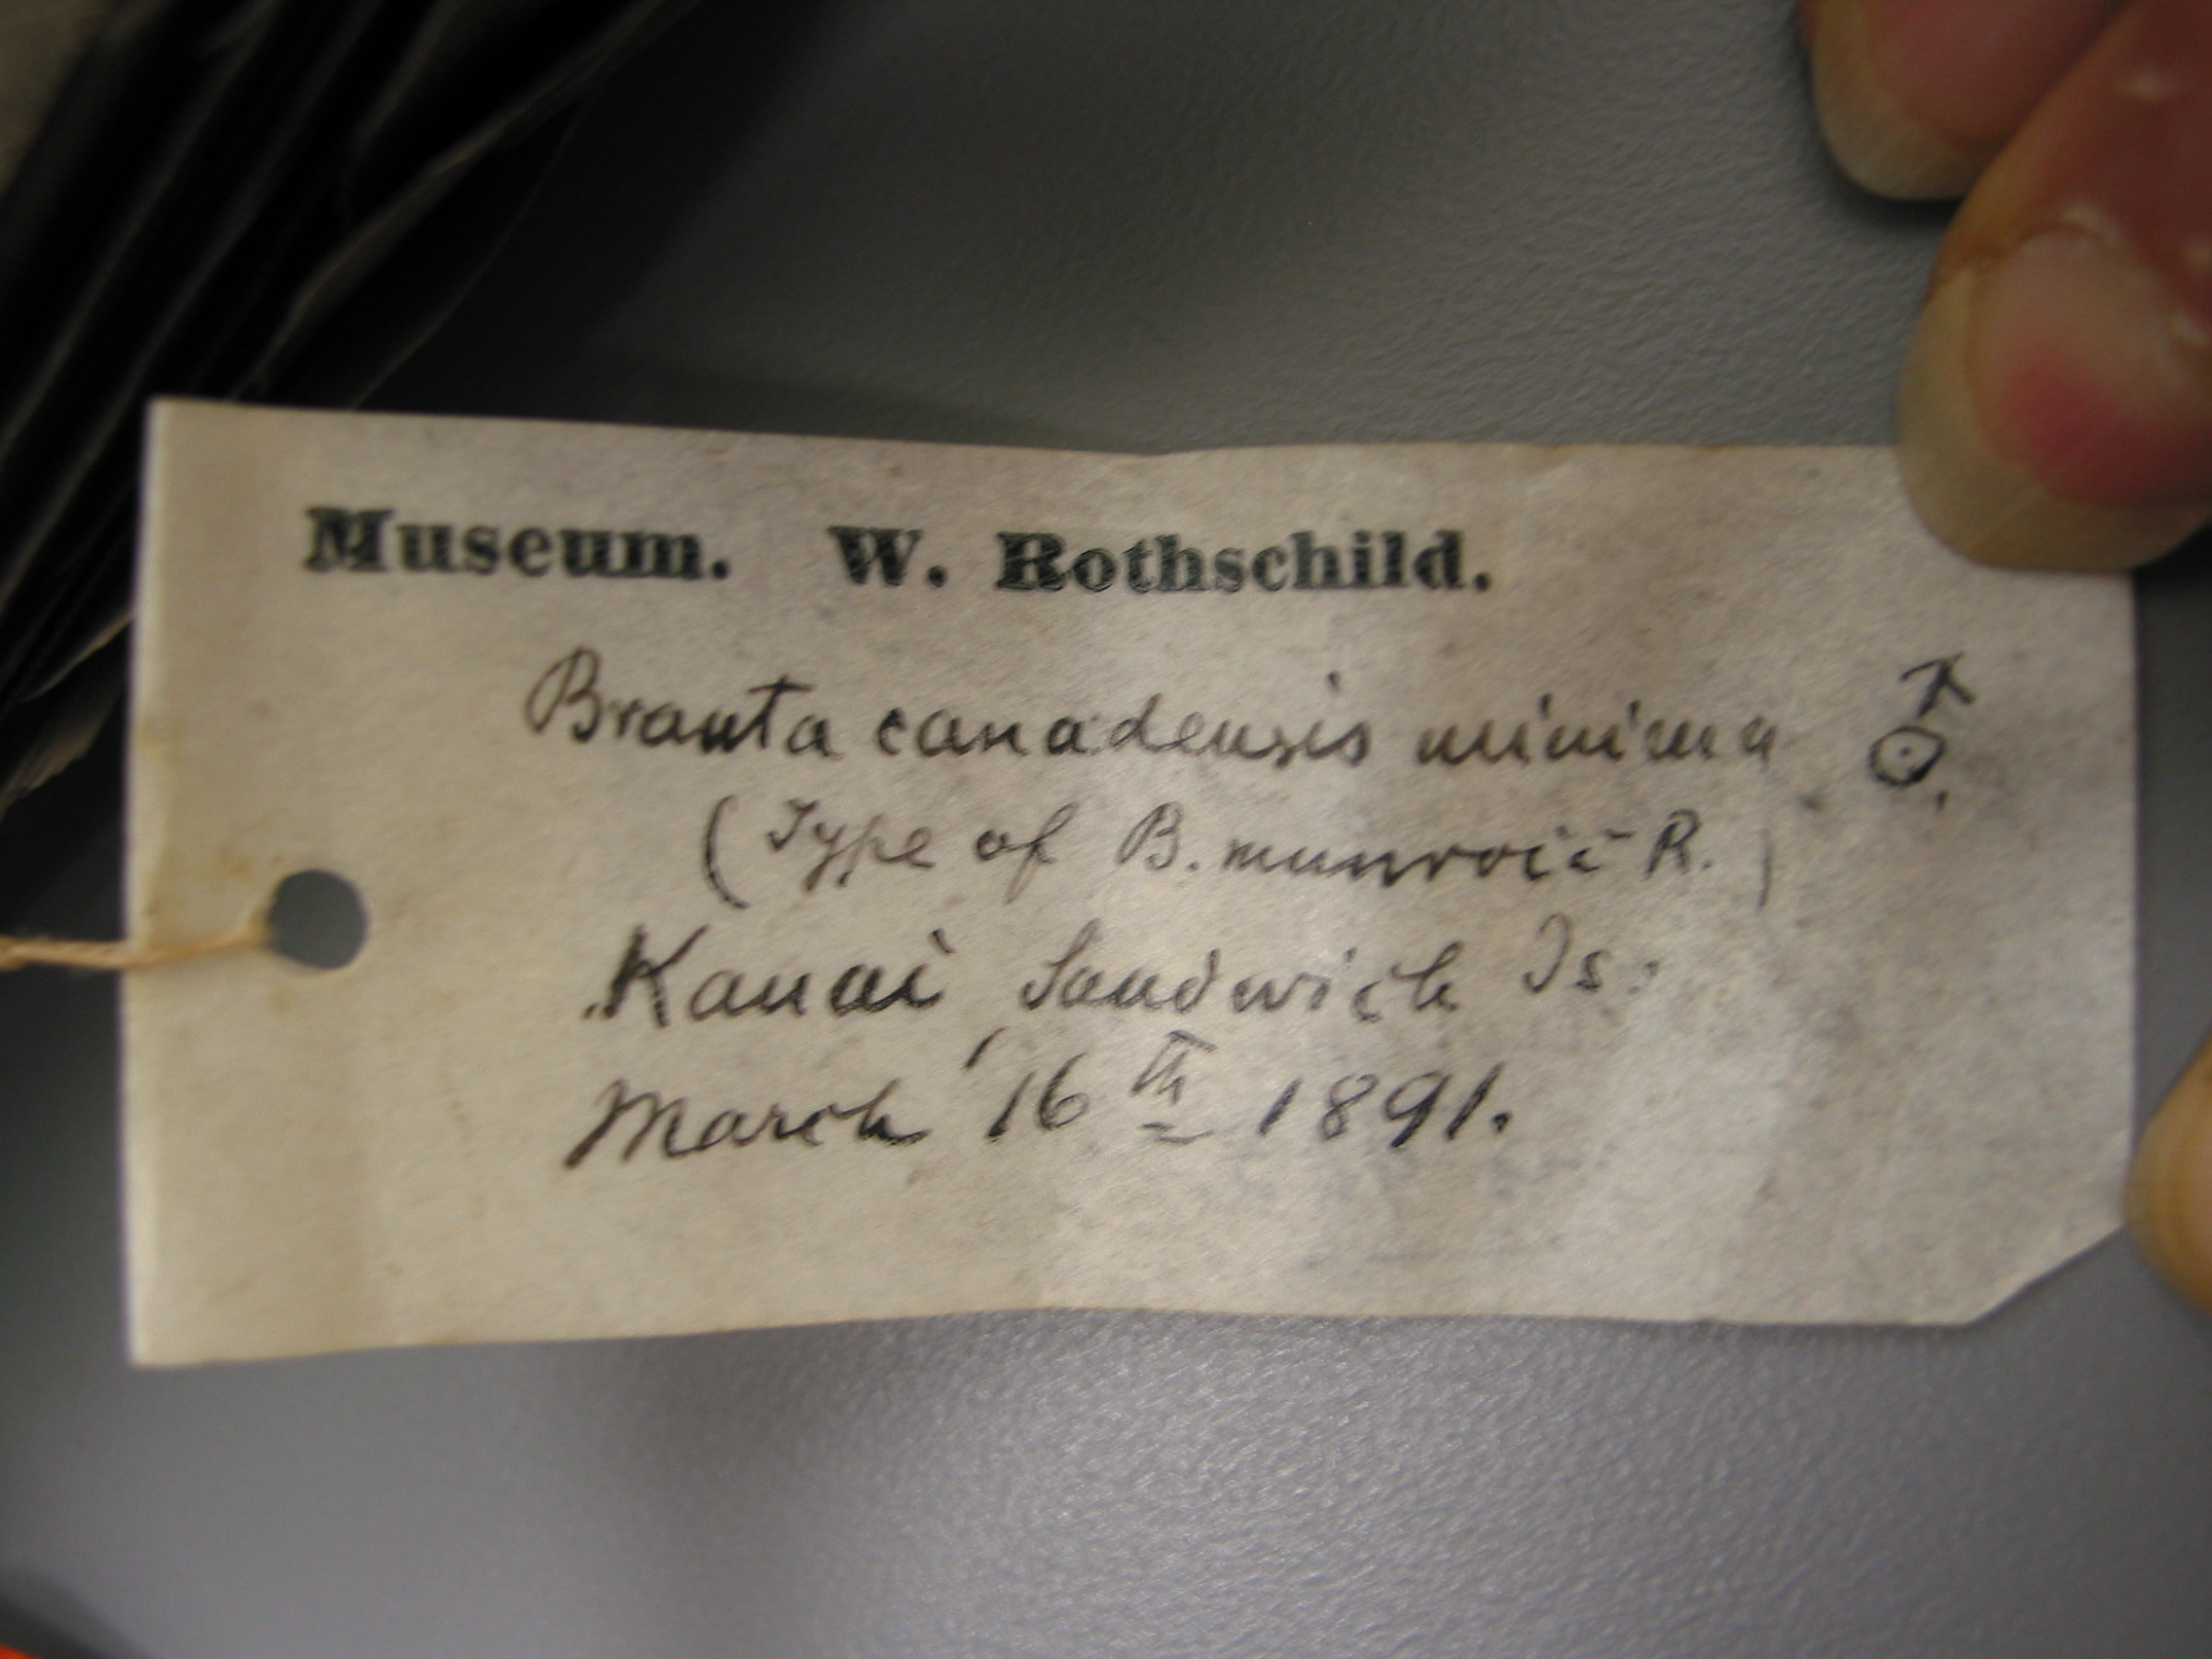 Museum. W. Rothschild.
Branta canadensis minima ♂.
(Type of B. munroii R.)
Kauai, Sandwich Is:
March 16th 1891.